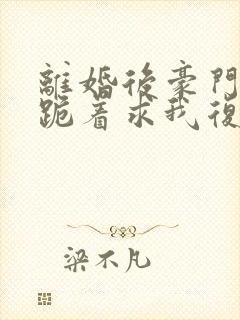 離婚後豪門
跪着求我復
梁不凡